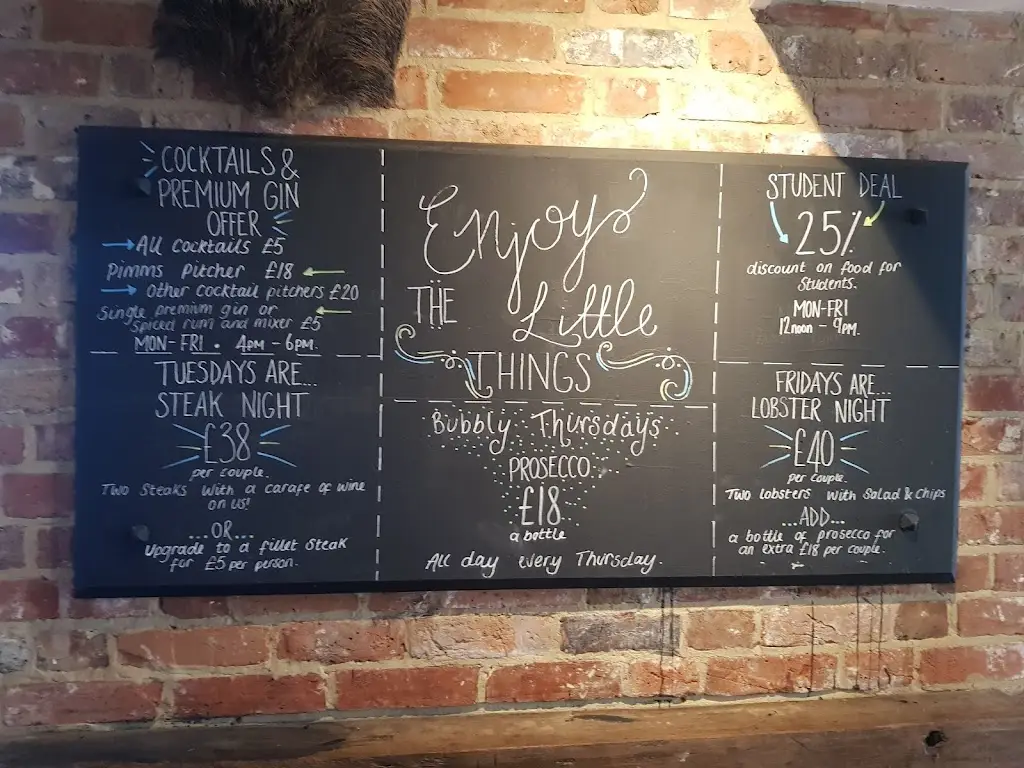 COCKTAILS &
PREMIUM GIN
OFFER
All cocktails £5
Pimms Pitcher £18
Other cocktail pitchers £20
Single premium gin or
spiced rum and mixer £5
MON-FRI • 4PM - 6PM.
TUESDAYS ARE...
STEAK NIGHT
£38
per couple.
Two Steaks with a carafe of wine
on us!
...OR...
Upgrade to a fillet steak
for £5 per person.
Enjoy
THE Little
THINGS
Bubbly Thursdays
PROSECCO
£18
a bottle
All day every Thursday.
STUDENT DEAL
25%
discount on food for
Students.
MON-FRI
12noon - 9PM.
FRIDAYS ARE...
LOBSTER NIGHT
£40
per couple.
Two lobsters with Salad & Chips
...ADD...
a bottle of prosecco for
an extra £18 per couple.